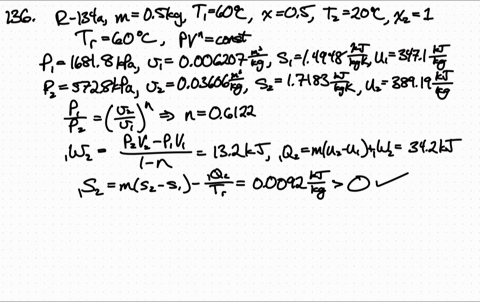 136. R-134a, m=0.5kg, T₁=60°C, x=0.5, T₂=20°C, x₂=1
Tᵣ=60°C, PVⁿ=const
P₁=1681.8kPa, υ₁=0.006207 m³/kg, S₁=1.4948 kJ/kgK, U₁=347.1 kJ/kg
P₂=572.8kPa, υ₂=0.03606 m³/kg, S₂=1.7183 kJ/kgK, U₂=389.19 kJ/kg
P₁/P₂ = (υ₂/υ₁)ⁿ ⇒ n=0.6122
₁W₂ = (P₂V₂-P₁V₁)/(1-n) = 13.2kJ, ₁Q₂=m(u₂-u₁)+₁W₂= 34.2kJ
₁S₂ = m(s₂-s₁) - ₁Q₂/Tᵣ = 0.0092 kJ/kg > 0 ✓